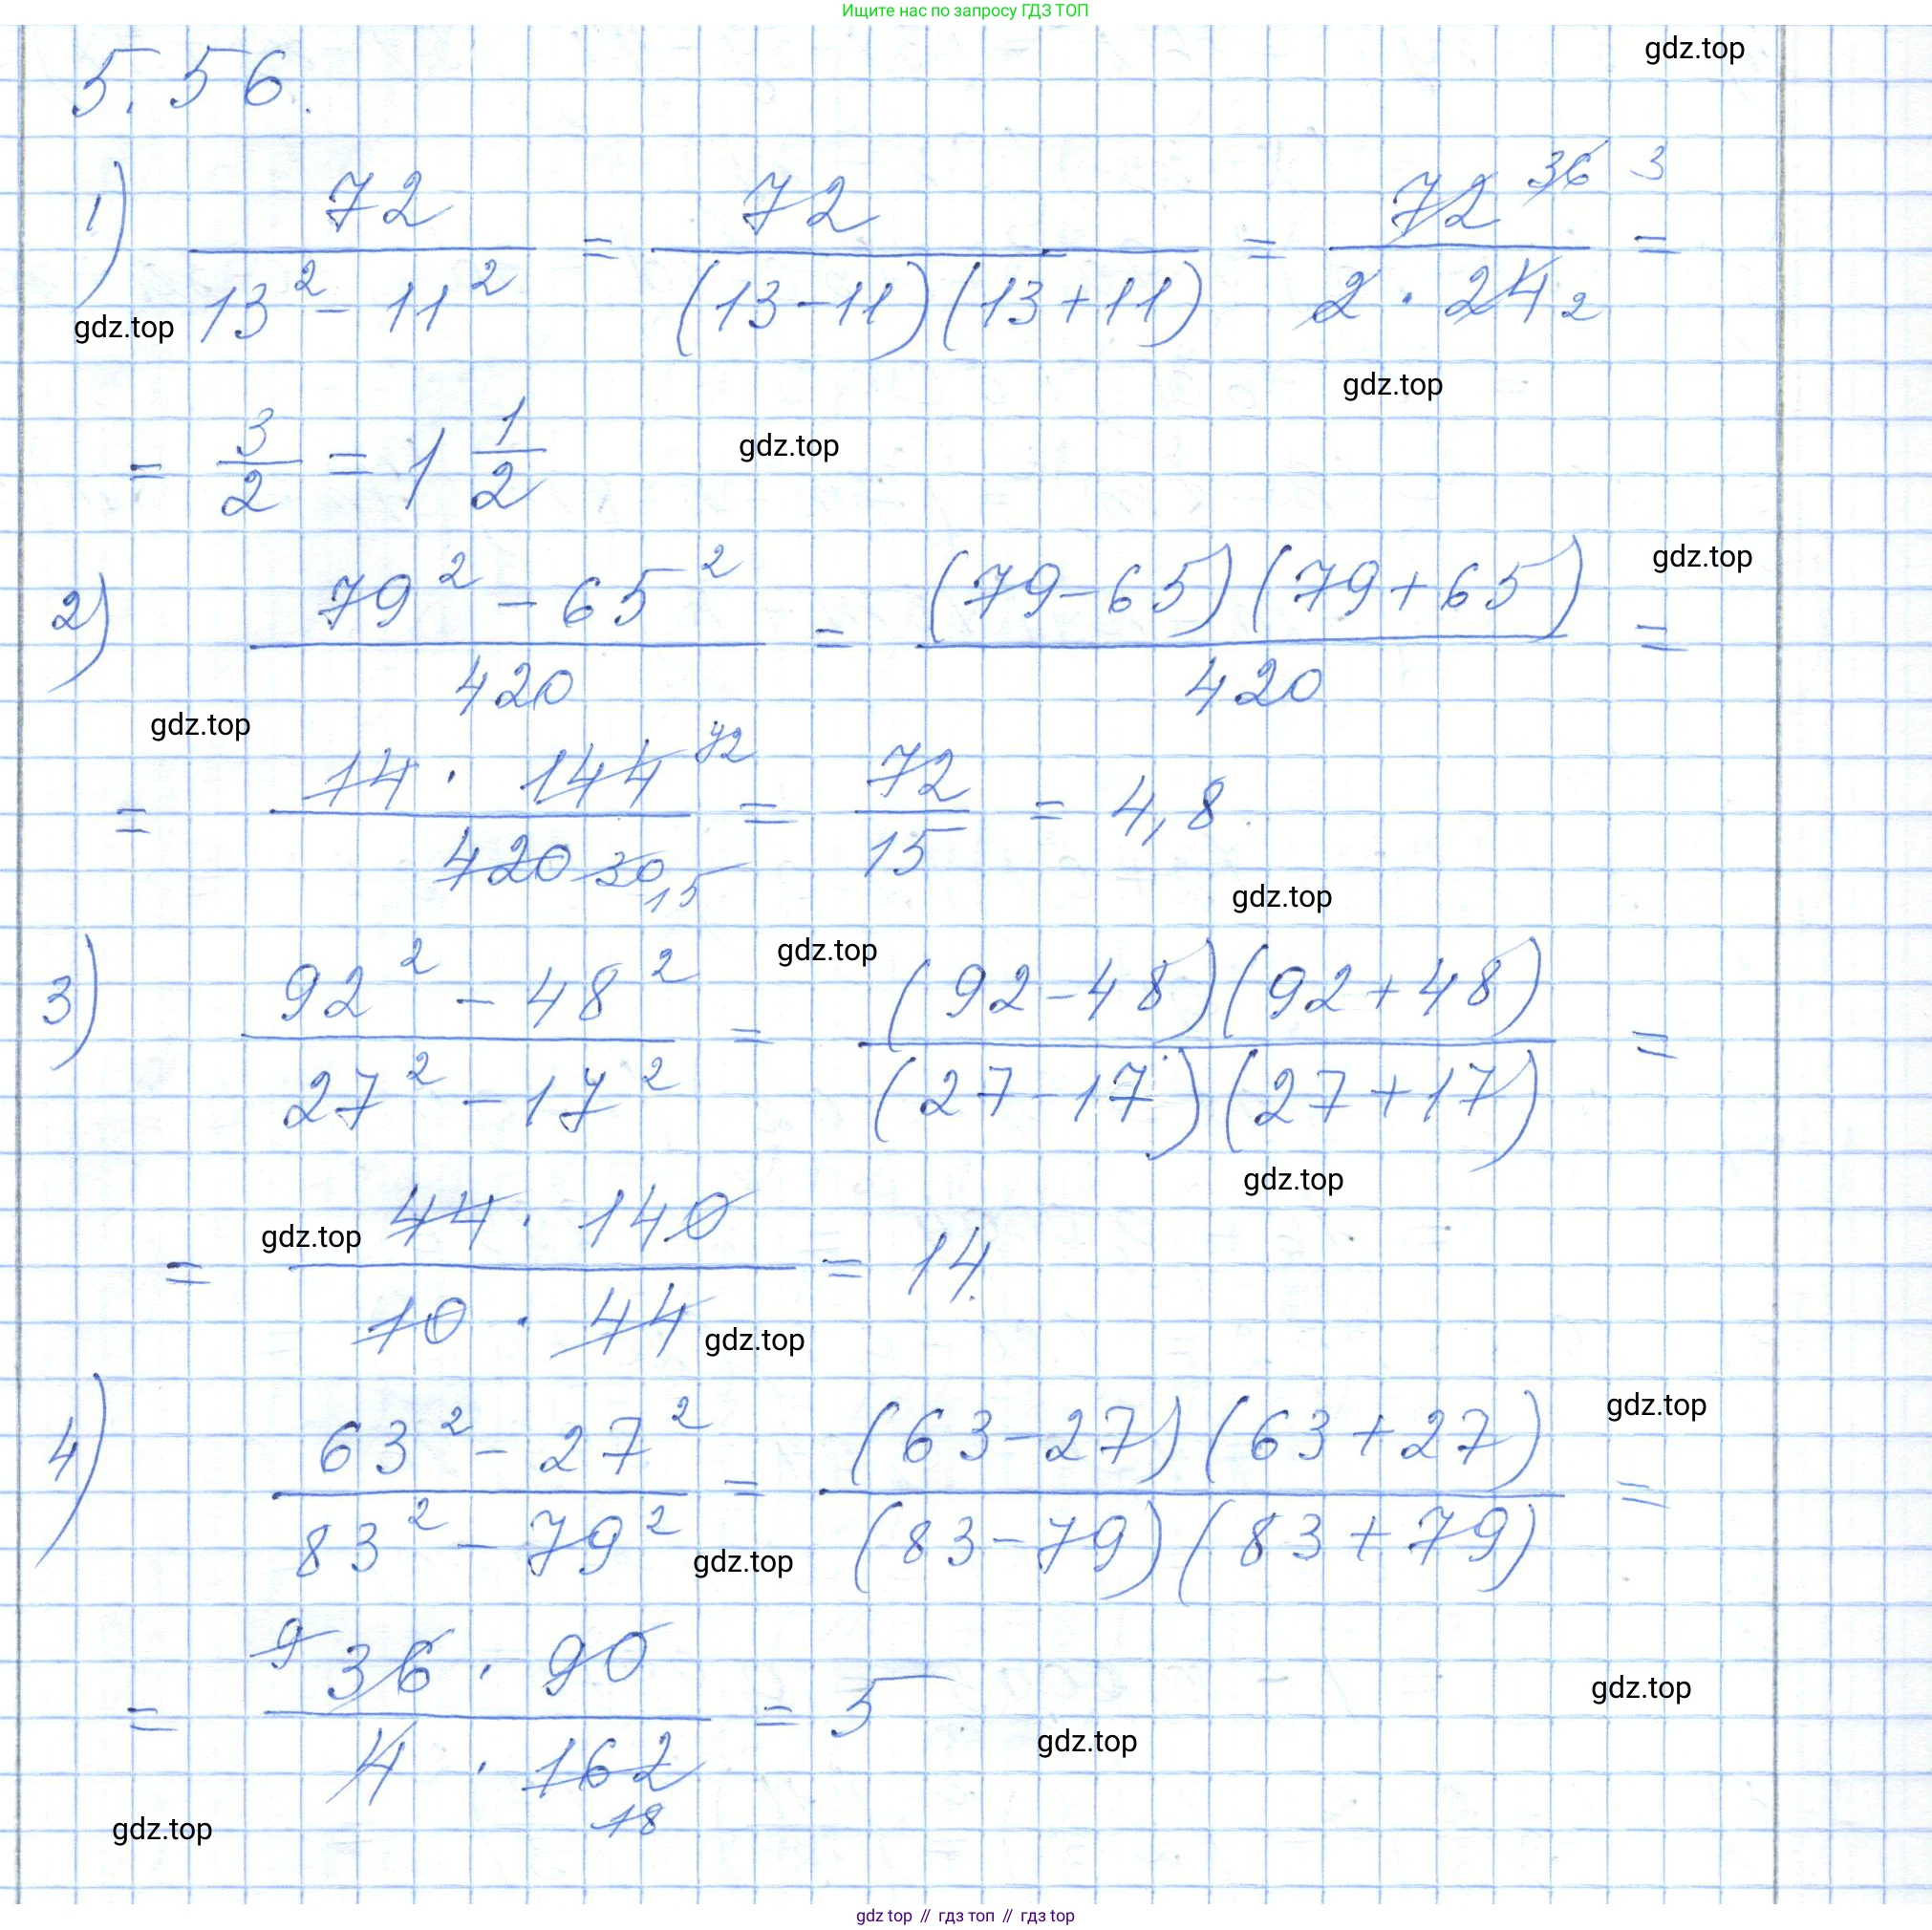 Ищите нас по запросу ГДЗ ТОП
gdz.top
5.56.
1) 72 / (13² - 11²) = 72 / ((13-11)(13+11)) = 72 36 3 / (2 · 24 2) =
gdz.top
gdz.top
= 3/2 = 1 1/2
gdz.top
2) (79² - 65²) / 420 = ((79-65)(79+65)) / 420 =
gdz.top
gdz.top
= (14 · 144 72) / (420 30 15) = 72/15 = 4,8.
gdz.top
gdz.top
3) (92² - 48²) / (27² - 17²) = ((92-48)(92+48)) / ((27-17)(27+17)) =
gdz.top
gdz.top
= (44 · 140) / (10 · 44) = 14.
gdz.top
gdz.top
4) (63² - 27²) / (83² - 79²) = ((63-27)(63+27)) / ((83-79)(83+79)) =
gdz.top
= (9 36 · 90) / (4 · 162 18) = 5.
gdz.top
gdz.top
gdz.top
gdz top // гдз топ // гдз top